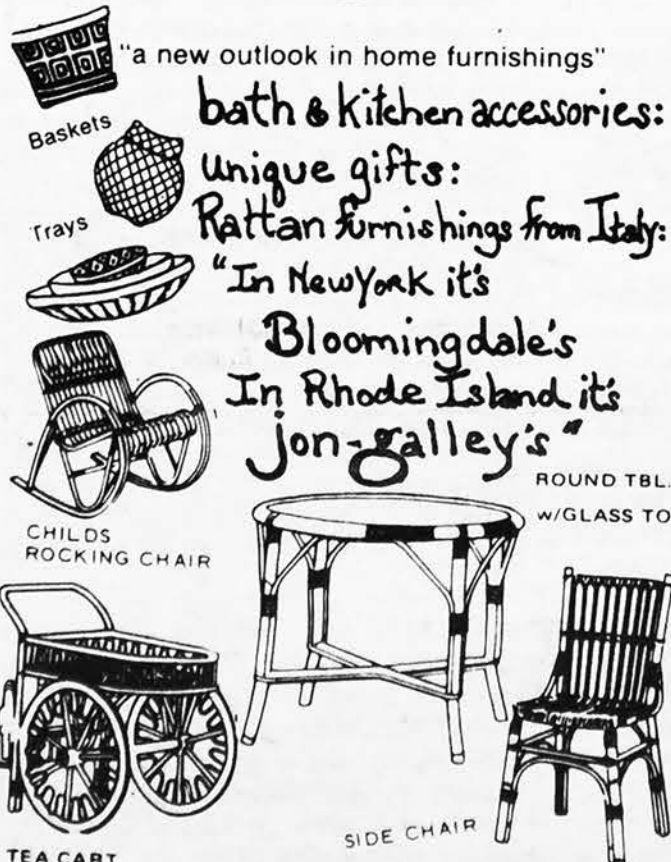 "a new outlook in home furnishings"
Baskets
bath & kitchen accessories:
unique gifts:
Trays
Rattan furnishings from Italy:
"In New York it's
Bloomingdale's
In Rhode Island it's
jon-galley's"
ROUND TBL.
w/GLASS TO
CHILDS
ROCKING CHAIR
SIDE CHAIR
TEA CART